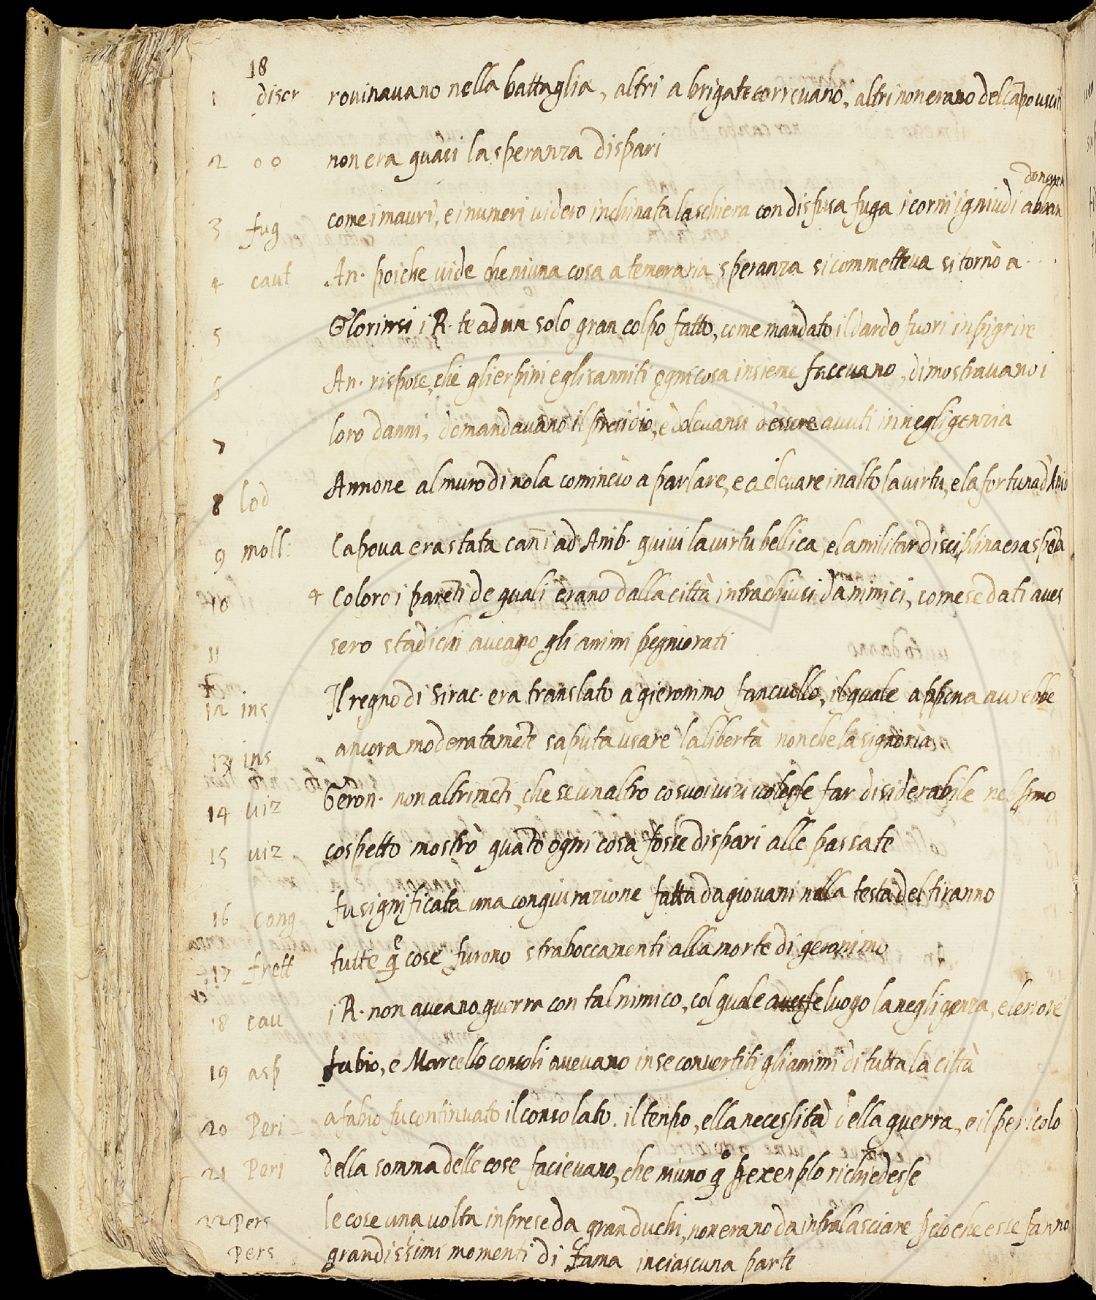 18
1 discr rovinavano nella battaglia, altri a brigate correvano, altri non erano del cāpo usciti
2 o o non era guari la speranza dispari
donzper
3 fug come i mauri, e i numeri videro inchinata la schiera con disfusa fuga i corni igniudi
4 caut An· poiche vide che niuna cosa a temeraria speranza si commetteva si tornò a ...
5 Glorinsi i R· te ad un solo gran colpo fatto, come mandato il dardo fuori inpigrire
6 An· rispose, che gli erpini e gli sanniti ogni cosa insieme faccvano, dimostravano i
7 loro danni, domandavano il presidio, e dolevansi d'essere avuti in negligenzia
8 lod Annone al muro di nola cominciò a parlare, e a elevare in alto la virtu, e la fortuna d'
9 moll: Capova era stata cān̄i ad Anib· quivi la virtu bellica, e la militar disciplina era
10 4 Coloro i parēti de quali erano dalla città intrachiusi da nimici, come se dati aves
11 sero stadichi aveano gli animi pegniorati
12 ins Il regno di Sirac· era translato a gieronimo fanciullo, il quale appena averebbe
13 ins ancora moderatamēte saputa usare la libertà non che la signoria
14 viz Geron· non altrimēti, che se un altro co suoi vizi volesse far disiderabile nel pmo
15 viz cospetto mostrò quāto ogni cosa fosse dispari alle passate
16 cong fu significata una congiurazione fatta da giovani nella testa del tiranno
17 frett tutte q̄e cose furono straboccamenti alla morte di geronimo
18 cau i R· non aveano guerra con tal nimico, col quale avesse luogo la negligenza,
19 asp fabio, e Marcello consoli avevano in se convertiti gli animi di tutta la città
20 Peri a fabio fu continuato il consolato. il tenpo, ella necessità della guerra, e il pericolo
21 Peri della somma delle cose facievano, che niuno q̄ p exenplo richiedesse
22 Pers le cose una volta inprese da gran duchi, non erano da intralasciare p cio che esse fanno
Pers grandissimi momenti di fama in ciascuna parte